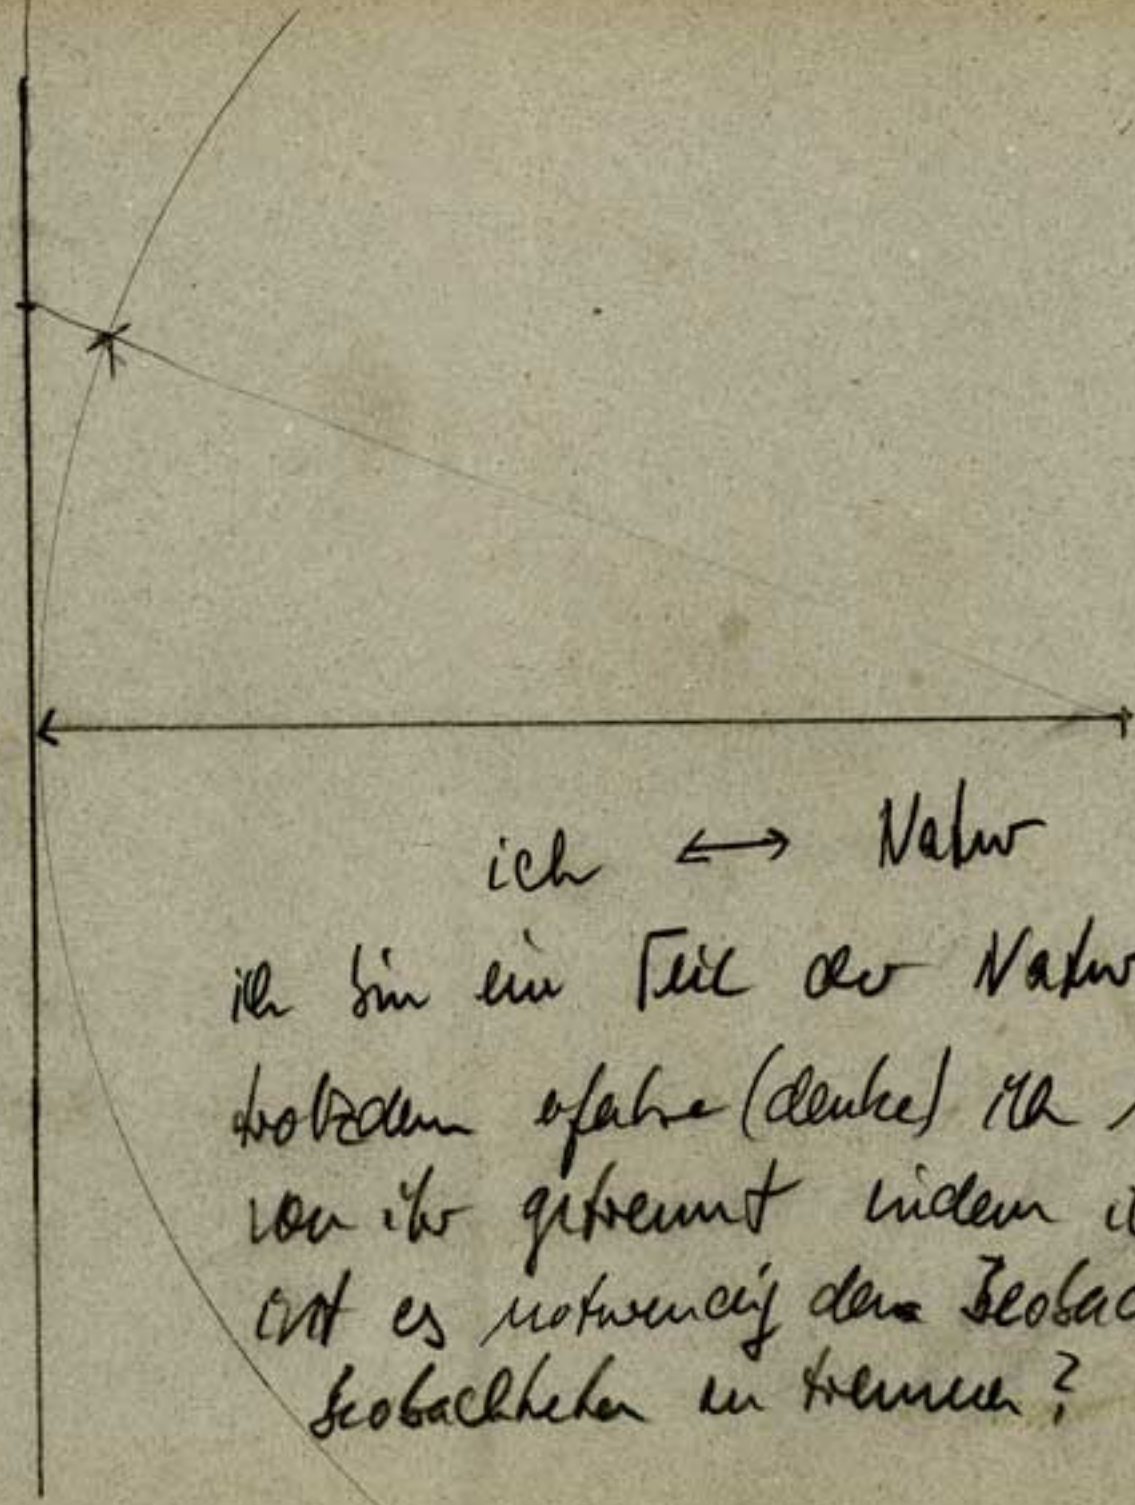 ich ↔ Natur
ich bin ein Teil der Natur
trotzdem erfahre (denke) ich
von ihr getrennt indem
ist es notwendig den Beobac
beobachteten zu trennen?